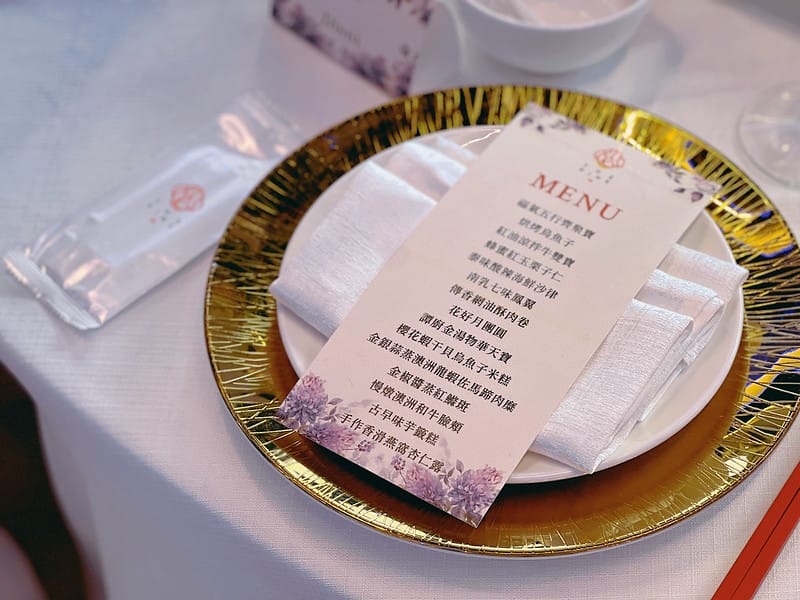 MENU
福氣五行齊聚寶
烘烤烏魚子
紅油涼拌牛雙寶
蜂蜜紅玉栗子仁
泰味酸辣海鮮沙律
南乳七味鳳翼
傳香網油酥肉卷
花好月團圓
譚廚金湯物華天寶
櫻花蝦干貝烏魚子米糕
金銀蒜蒸澳洲龍蝦佐馬蹄肉糜
金椒醬蒸紅鰷斑
慢燉澳洲和牛臉頰
古早味芋籤糕
手作香滑燕窩杏仁露